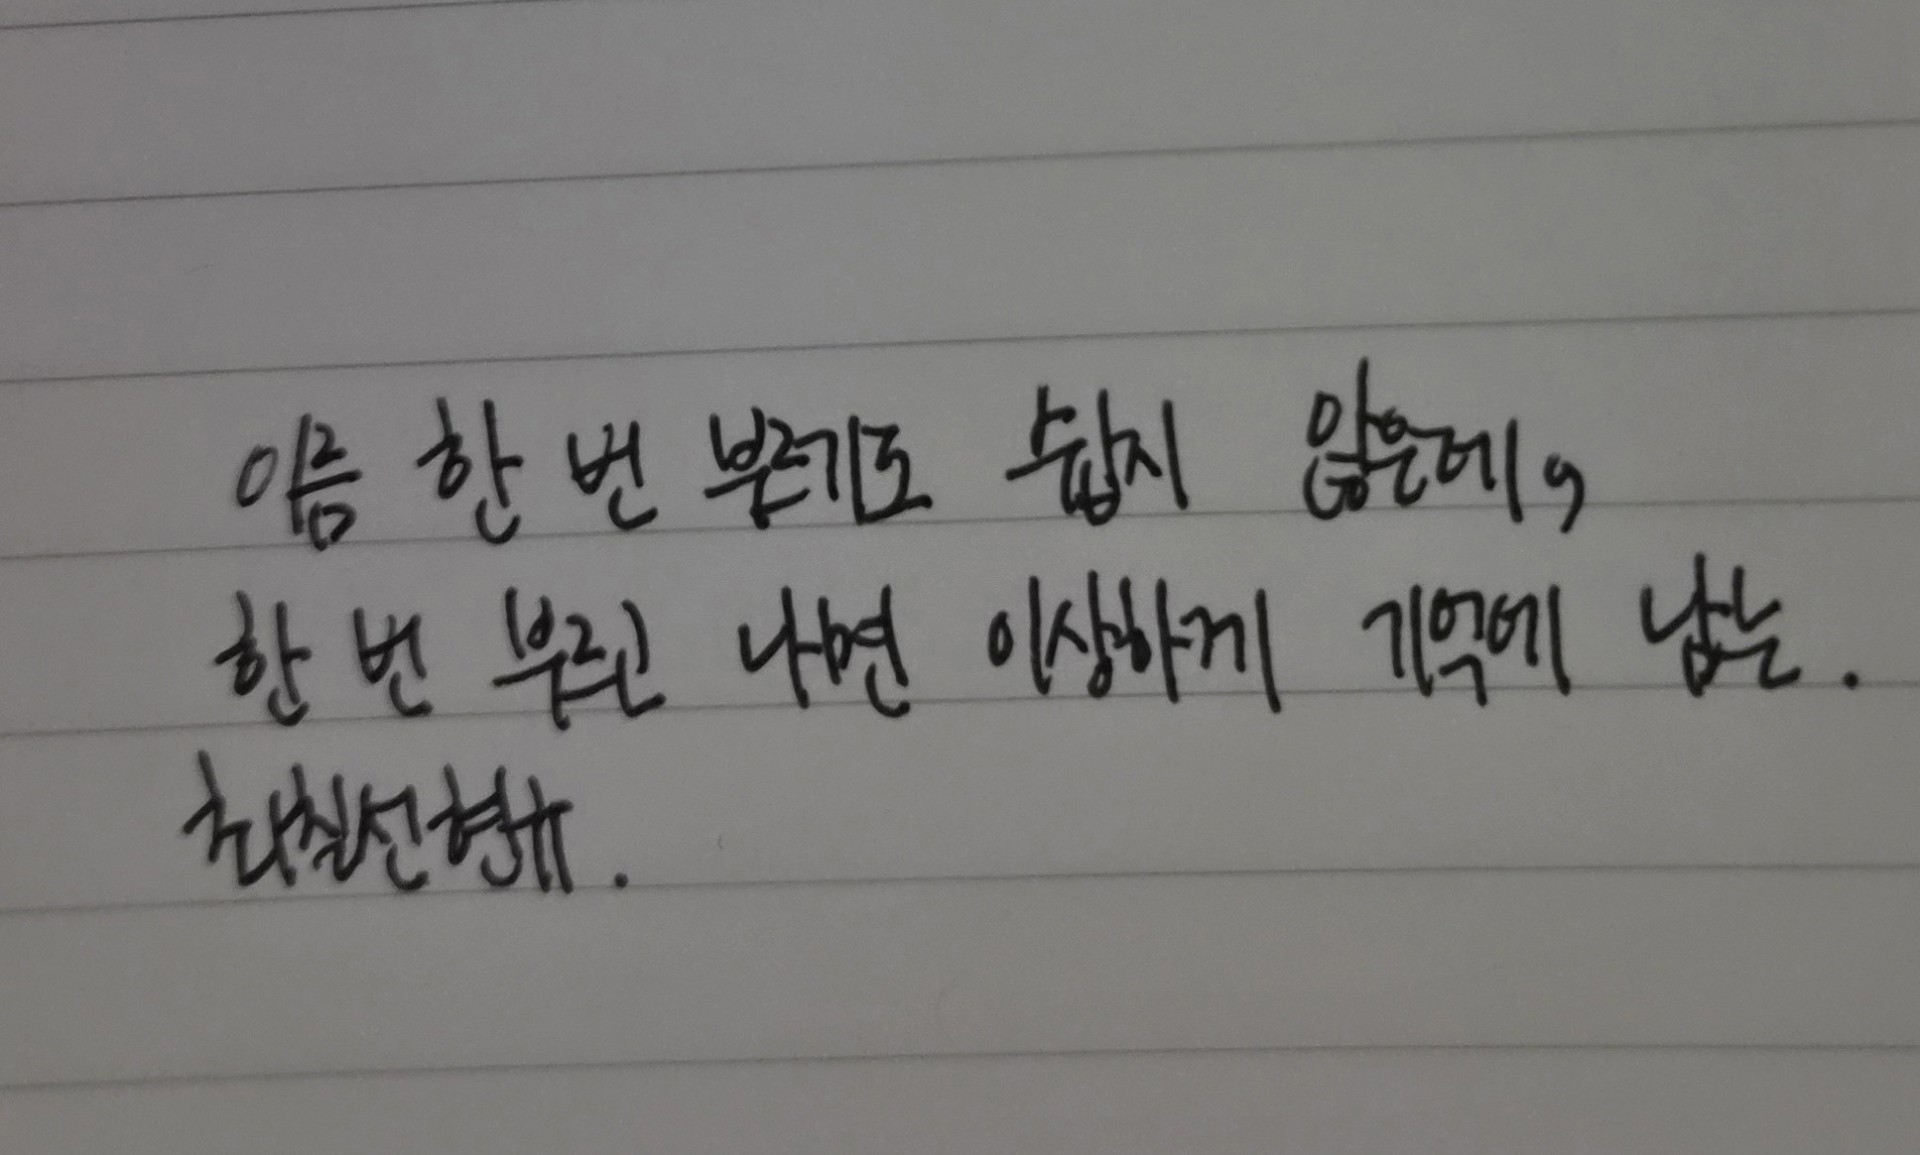 이름 한 번 부르기도 쉽지 않은데,
한 번 부르고 나면 이상하게 기억에 남는.